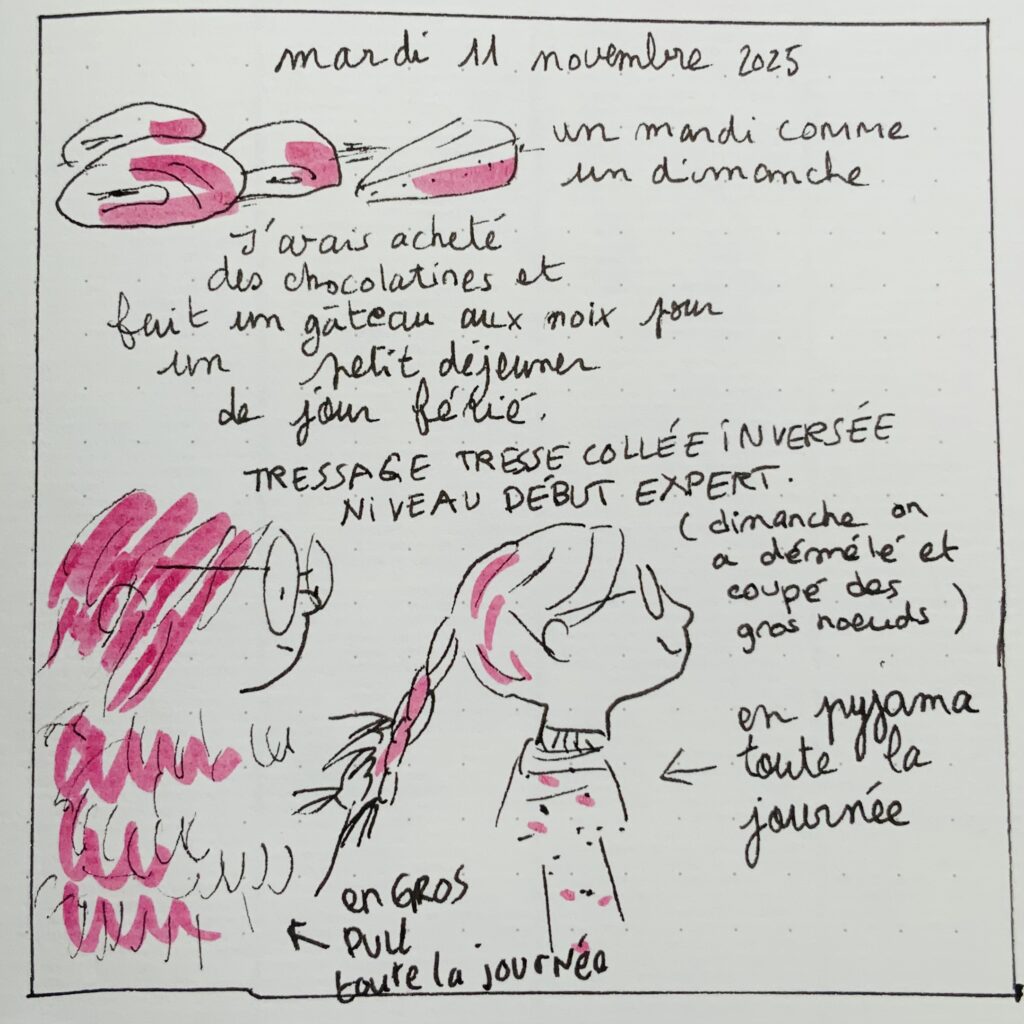 mardi 11 novembre 2025
un mardi comme
un dimanche
J'avais acheté
des chocolatines et
fait un gâteau aux noix pour
un petit déjeuner
de jour férié.
TRESSAGE TRESSE COLLÉE INVERSÉE
NIVEAU DÉBUT EXPERT.
(dimanche on
a démêlé et
coupé des
gros noeuds)
en pyjama
toute la
journée
en GROS
PULL
toute la journée